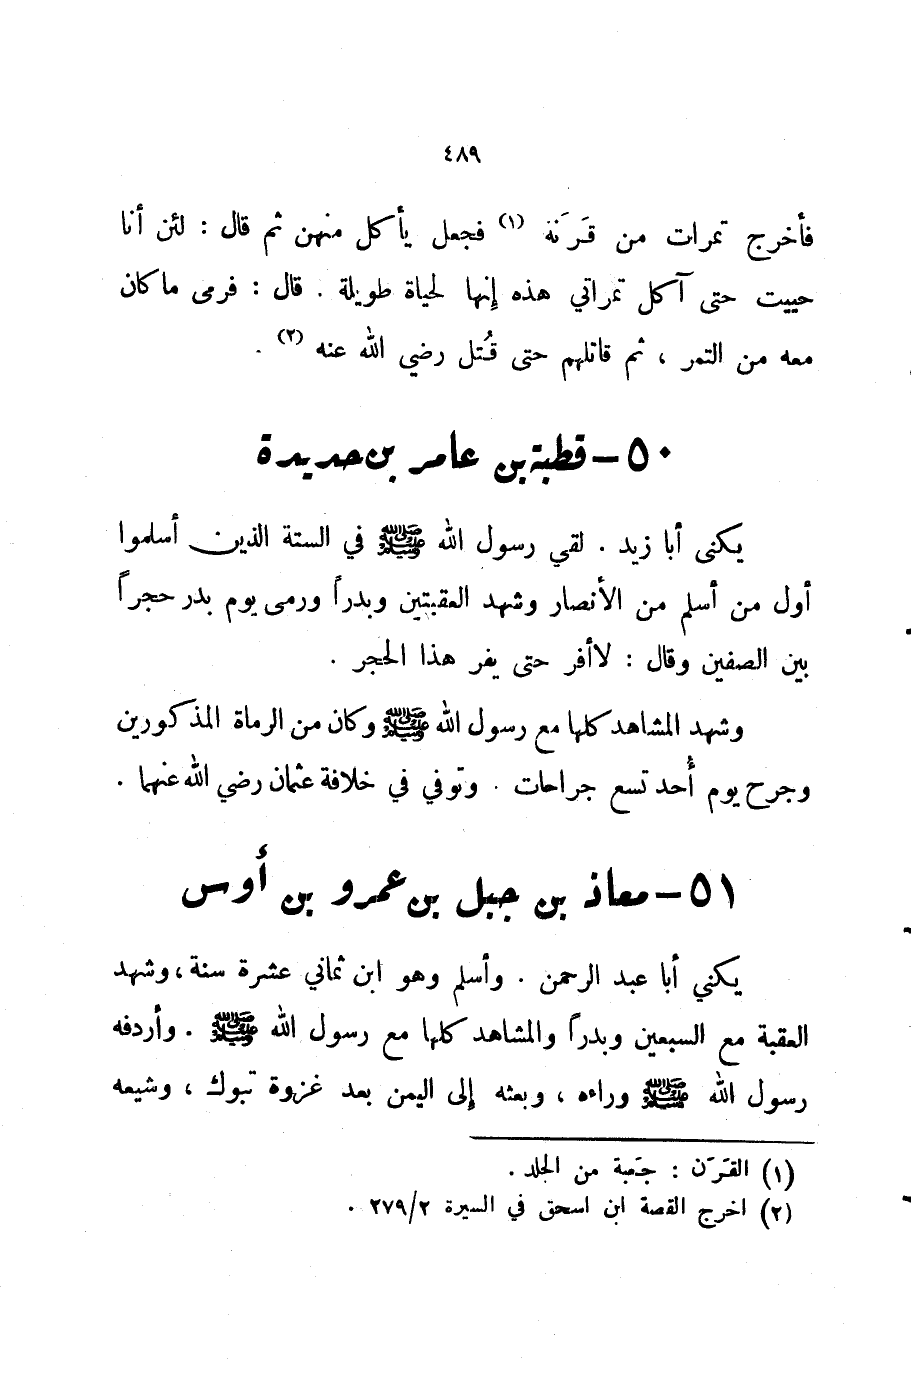 ٤٨٩
فأخرج تمرات من قَرَنه (١) فجعل يأكل منهن ثم قال : لئن أنا
حييت حتى آكل تمراتي هذه إنها لحياة طويلة . قال : فرمى ماكان
معه من التمر ، ثم قاتلهم حتى قُتل رضي الله عنه (٢) .
٥٠ – قطبة بن عامر بن حديدة
يكنى أبا زيد . لقي رسول الله ﷺ في الستة الذين أسلموا
أول من أسلم من الأنصار وشهد العقبتين وبدراً ورمى يوم بدر حجراً
بين الصفين وقال : لاأفر حتى يفر هذا الحجر .
وشهد المشاهد كلها مع رسول الله ﷺ وكان من الرماة المذكورين
وجرح يوم أُحد تسع جراحات . وتوفي في خلافة عثمان رضي الله عنهما .
٥١ – معاذ بن جبل بن عمرو بن أوس
يكني أبا عبد الرحمن . وأسلم وهو ابن ثماني عشرة سنة ، وشهد
العقبة مع السبعين وبدراً والمشاهد كلها مع رسول الله ﷺ . وأردفه
رسول الله ﷺ وراءه ، وبعثه إلى اليمن بعد غزوة تبوك ، وشيعه
(١) القَرَن : جَعبة من الجلد .
(٢) اخرج القصة ابن اسحق في السيرة ٢/٢٧٩ .